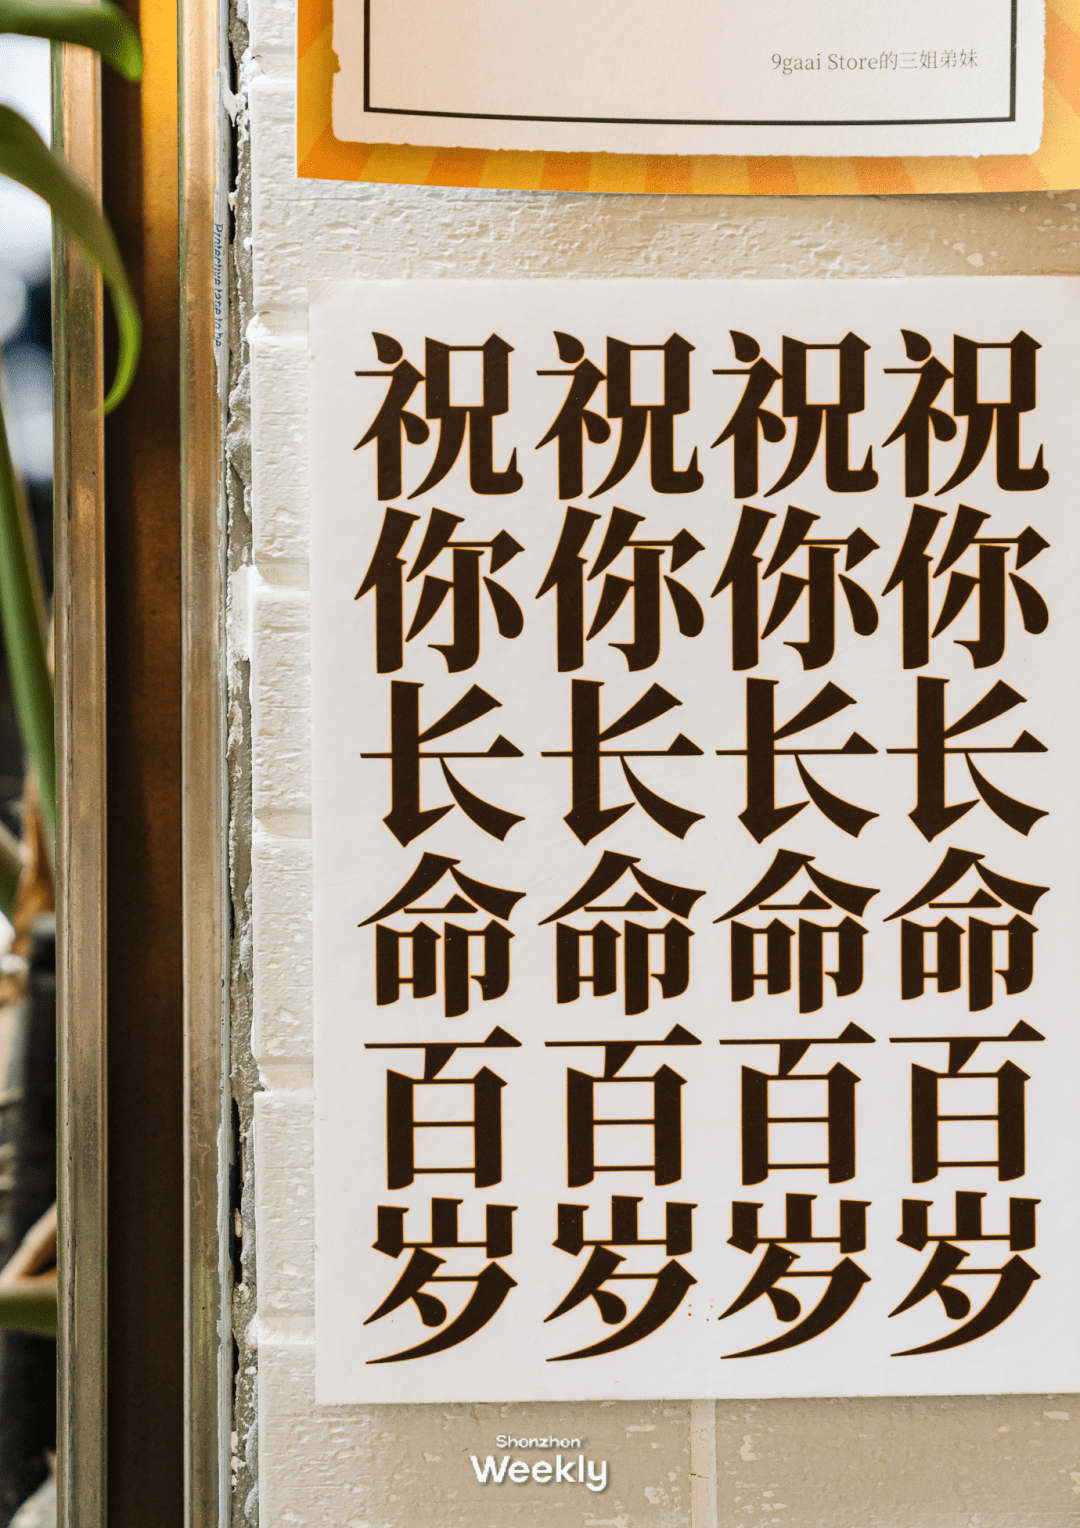 9gaai Store的三姐弟妹
Protective tape to be
祝你长命百岁
祝你长命百岁
祝你长命百岁
祝你长命百岁
Shenzhen
Weekly